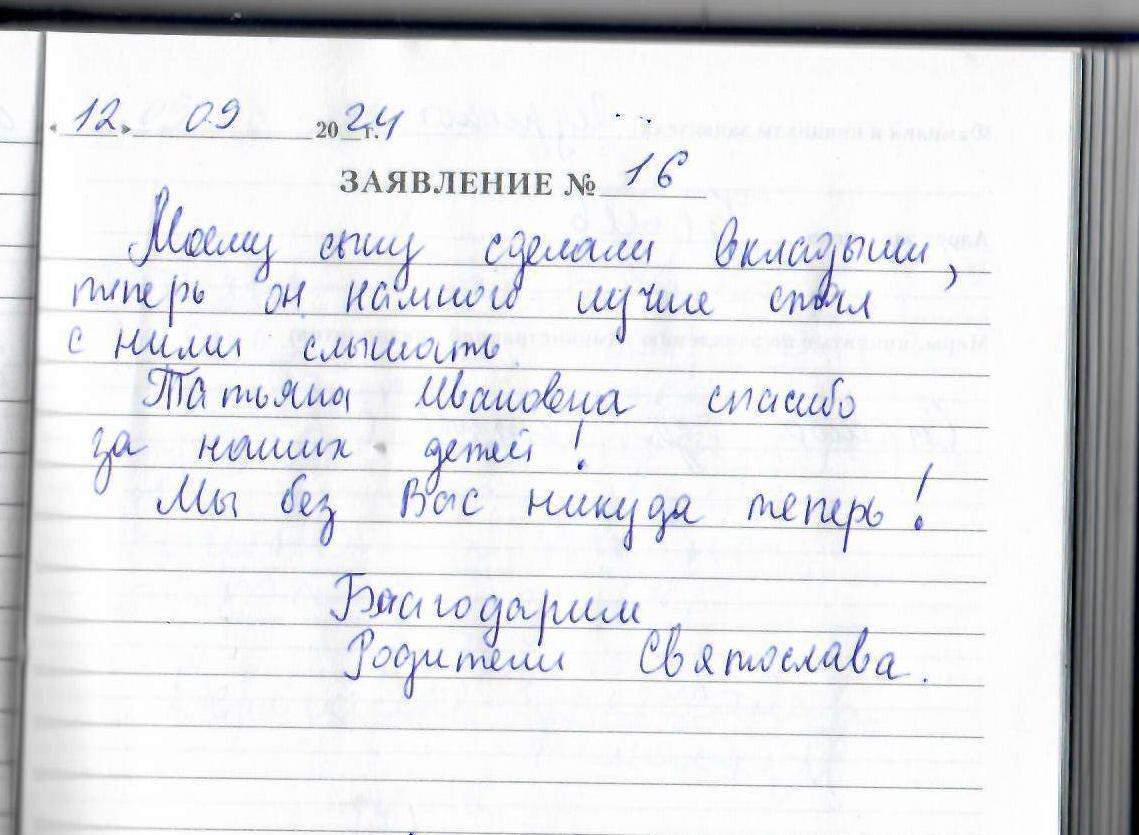 «12» 09 2024 г.
ЗАЯВЛЕНИЕ № 16
Моему сыну сделали вкладыши,
теперь он намного лучше стал
с ними слышать.
Татьяна Ивановна спасибо
за наших детей!
Мы без Вас никуда теперь!
Благодарим
Родители Святослава.